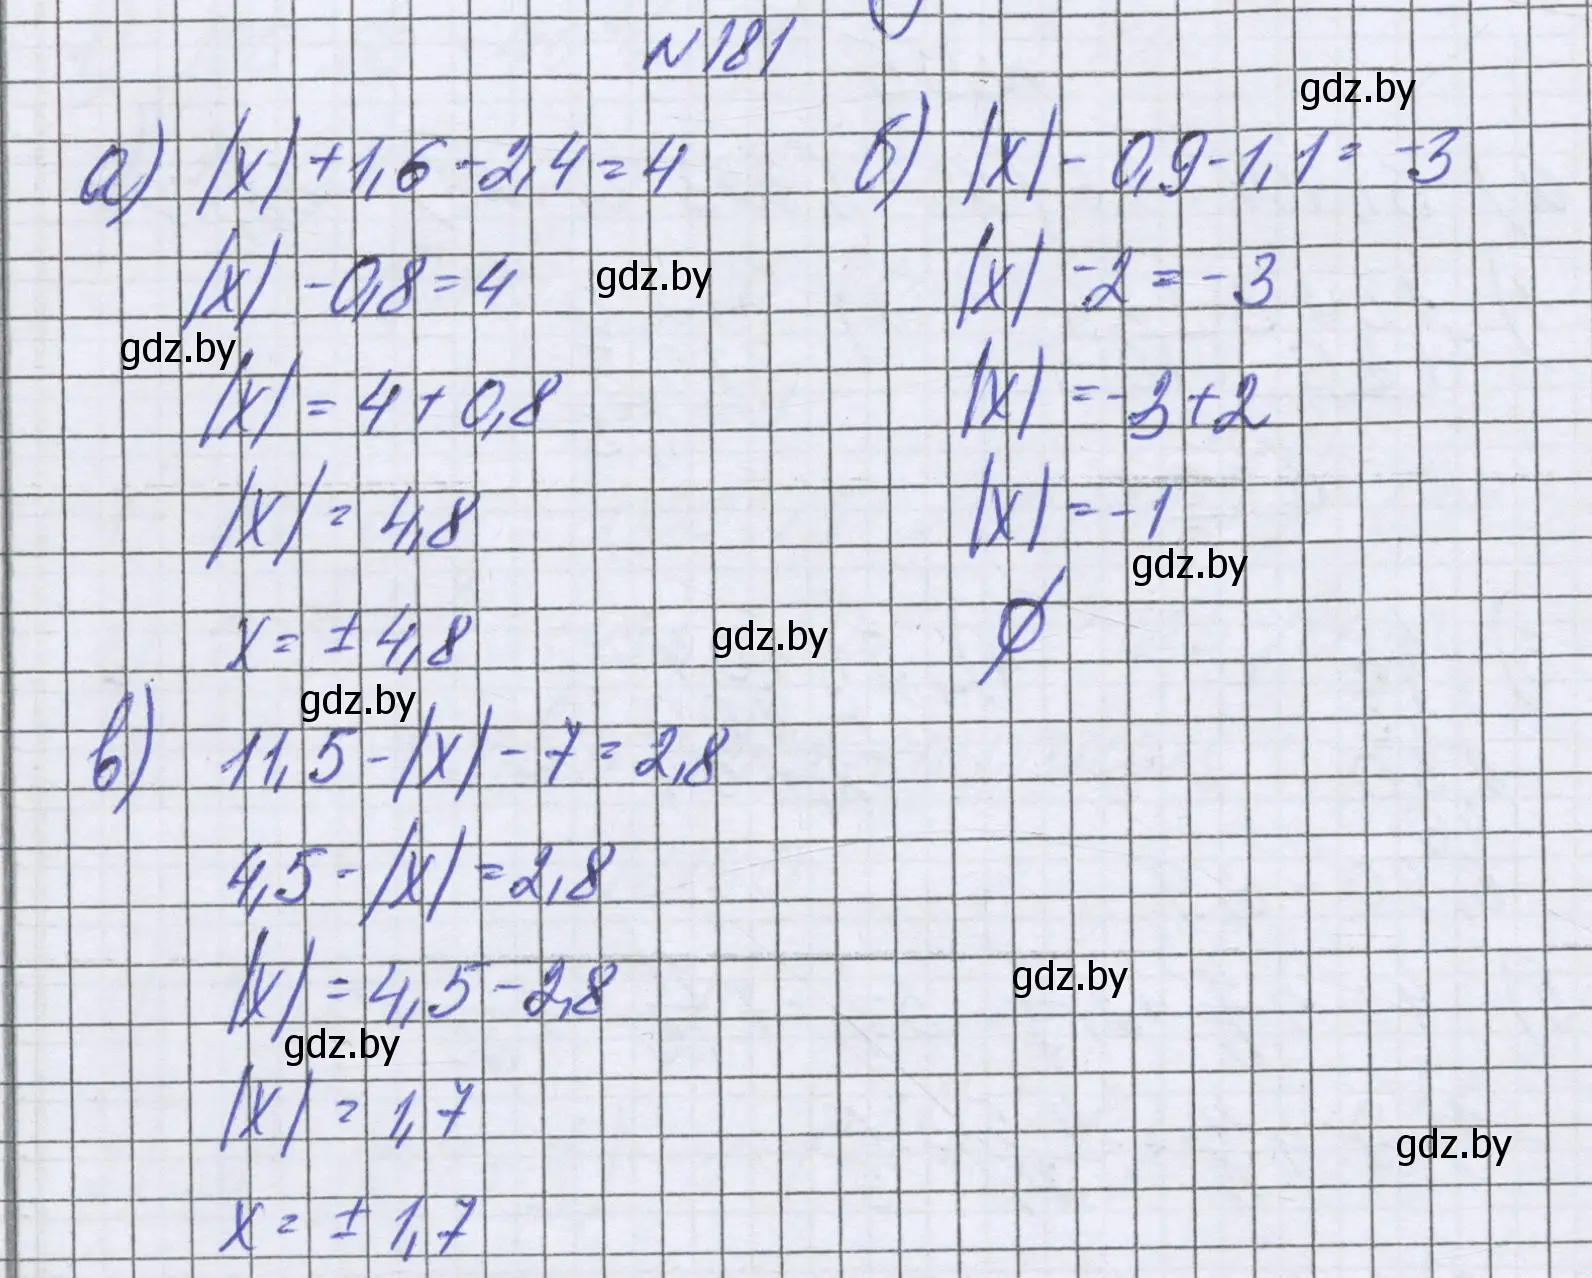 №181
а) |x| + 1,6 - 2,4 = 4
|x| - 0,8 = 4
|x| = 4 + 0,8
|x| = 4,8
x = ± 4,8
б) |x| - 0,9 - 1,1 = -3
|x| - 2 = -3
|x| = -3 + 2
|x| = -1
∅
в) 11,5 - |x| - 7 = 2,8
4,5 - |x| = 2,8
|x| = 4,5 - 2,8
|x| = 1,7
x = ± 1,7
gdz.by
gdz.by
gdz.by
gdz.by
gdz.by
gdz.by
gdz.by
gdz.by
gdz.by